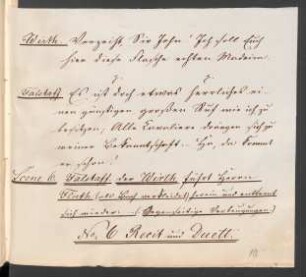 Wirth. Verzeiht, Sir John! Ich soll Euch
hier diese Flasche echten Madeira.
Falstaff. Es ist doch etwas Herrliches ei-
nen günstigen großen Ruf wie ich zu
besitzen; Alle Cavaliere drängen sich zu
meiner Bekanntschaft. Ha, da kommt
er schon!
Scene 6. Falstaff, der Wirth führt Herrn
Fluth (als Bach verkleidet) herein und entfernt
sich wieder. (Gegenseitige Verbeugungen)
No 6 Recit und Duett.